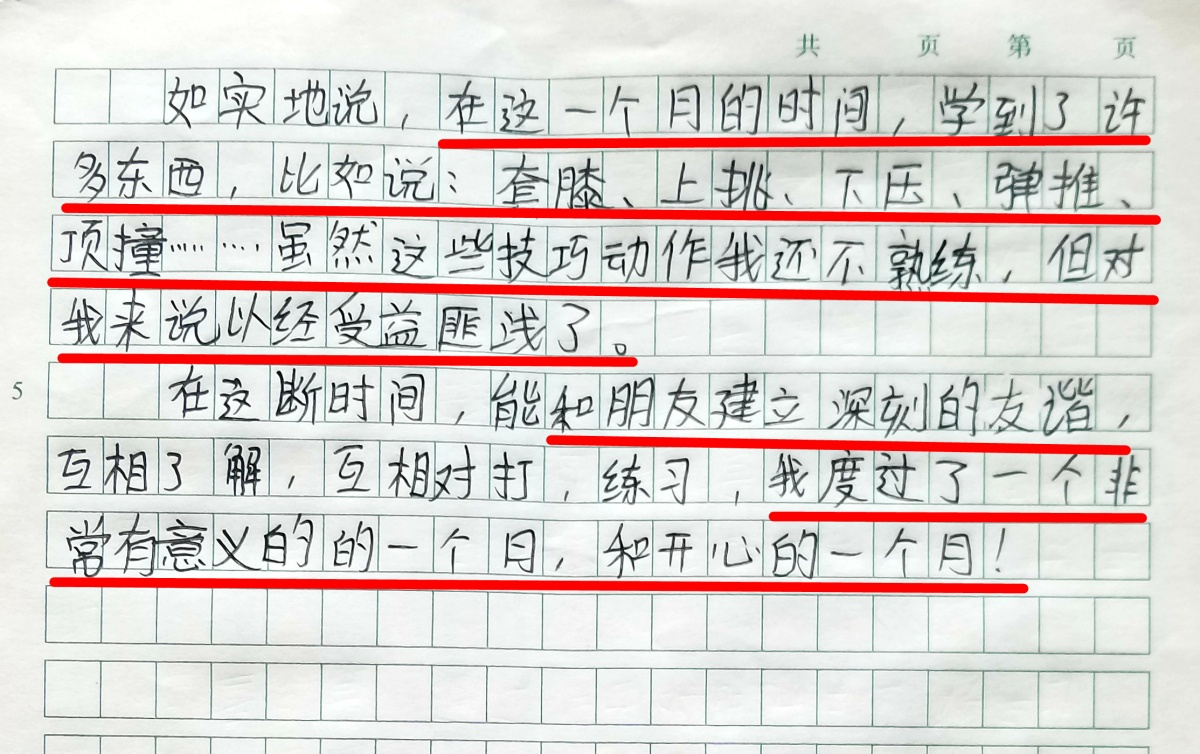 共 页 第 页
如实地说，在这一个月的时间，学到了许
多东西，比如说：套膝、上挑、下压、弹推、
顶撞……虽然这些技巧动作我还不熟练，但对
我来说以经受益匪浅了。
5
在这断时间，能和朋友建立深刻的友谐，
互相了解，互相对打，练习，我度过了一个非
常有意义的的一个日，和开心的一个月！